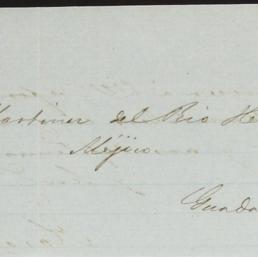 Martinez del Rio He
Méjico
Guada